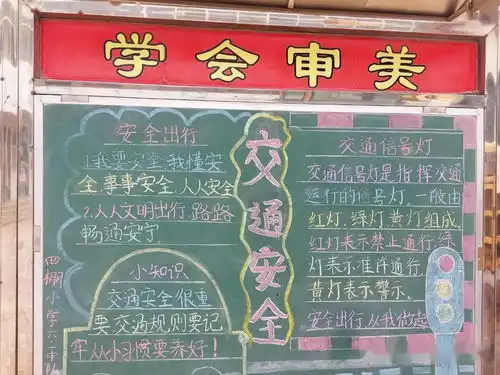 学会审美
安全出行
1.我要安全我懂安
全,事事安全,人人安全
2.人人文明出行,路路
畅通安宁.
小知识
交通安全很重
要,交通规则要记
牢从小习惯要养好!
交通安全
交通信号灯
交通信号灯是指挥交通
运行的信号灯,一般由
红灯.绿灯黄灯组成.
红灯表示禁止通行,绿
灯表示准许通行,
黄灯表示警示.
安全出行从我做起
四棚小学六一中队